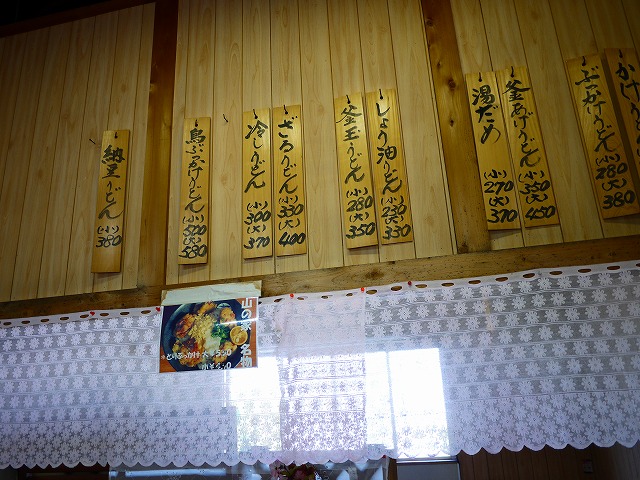 かけう
ぶっかけうどん
(小)
280
(大)
380
釜あげうどん
(小)
350
(大)
450
湯だめ
(小)
270
(大)
370
しょう油うどん
(小)
230
(大)
330
釜玉うどん
(小)
280
(大)
350
ざるうどん
(小)
330
(大)
400
冷しうどん
(小)
300
(大)
370
鳥ぶっかけうどん
(小)
500
(大)
580
納豆うどん
(小)
380
名物